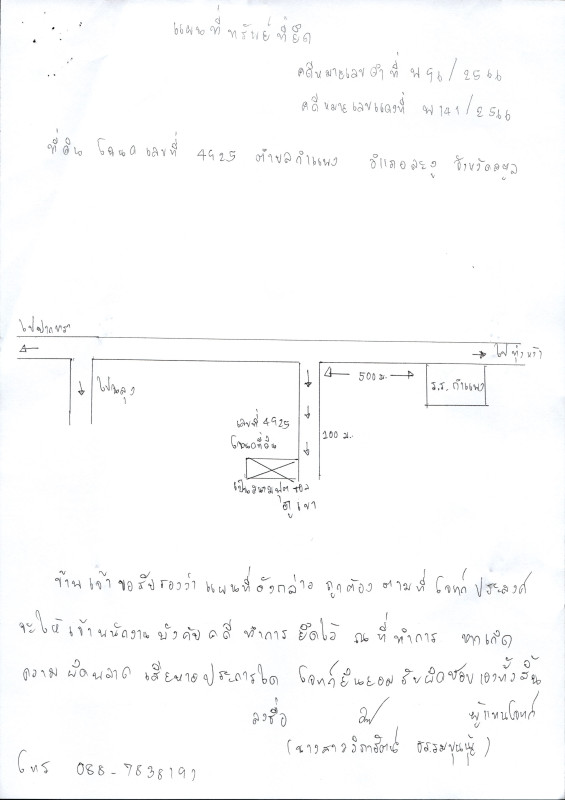 แผนที่ทรัพย์ที่ยึด
คดีหมายเลขดำที่ ผ 96/2566
คดีหมายเลขแดงที่ ผ 141/2566
ที่ดิน โฉนดเลขที่ 4925 ตำบลกำแพง อำเภอละงู จังหวัดสตูล
ไปทุ่งหว้า
500 ม.
ร.ร. กำแพง
เลขที่ 4925
โฉนดที่ดิน
100 ม.
ข้าพเจ้าขอรับรองว่า แผนที่ดังกล่าว ถูกต้อง ตามที่ โจทก์ ประสงค์
จะให้ เจ้าพนักงานบังคับคดี ทำการ ยึดไว้ ณ ที่ทำการ หากเกิด
ความผิดพลาด เสียหายประการใด โจทก์ยินยอมรับผิดชอบเองทั้งสิ้น
ลงชื่อ ผู้แทนโจทก์
(นางสาว
โทร 088-7838191